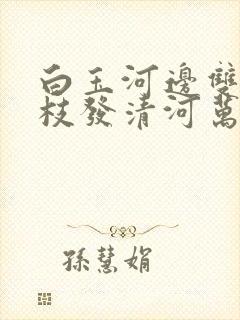 白玉河邊雙
枝發清河萬
孫慧娟